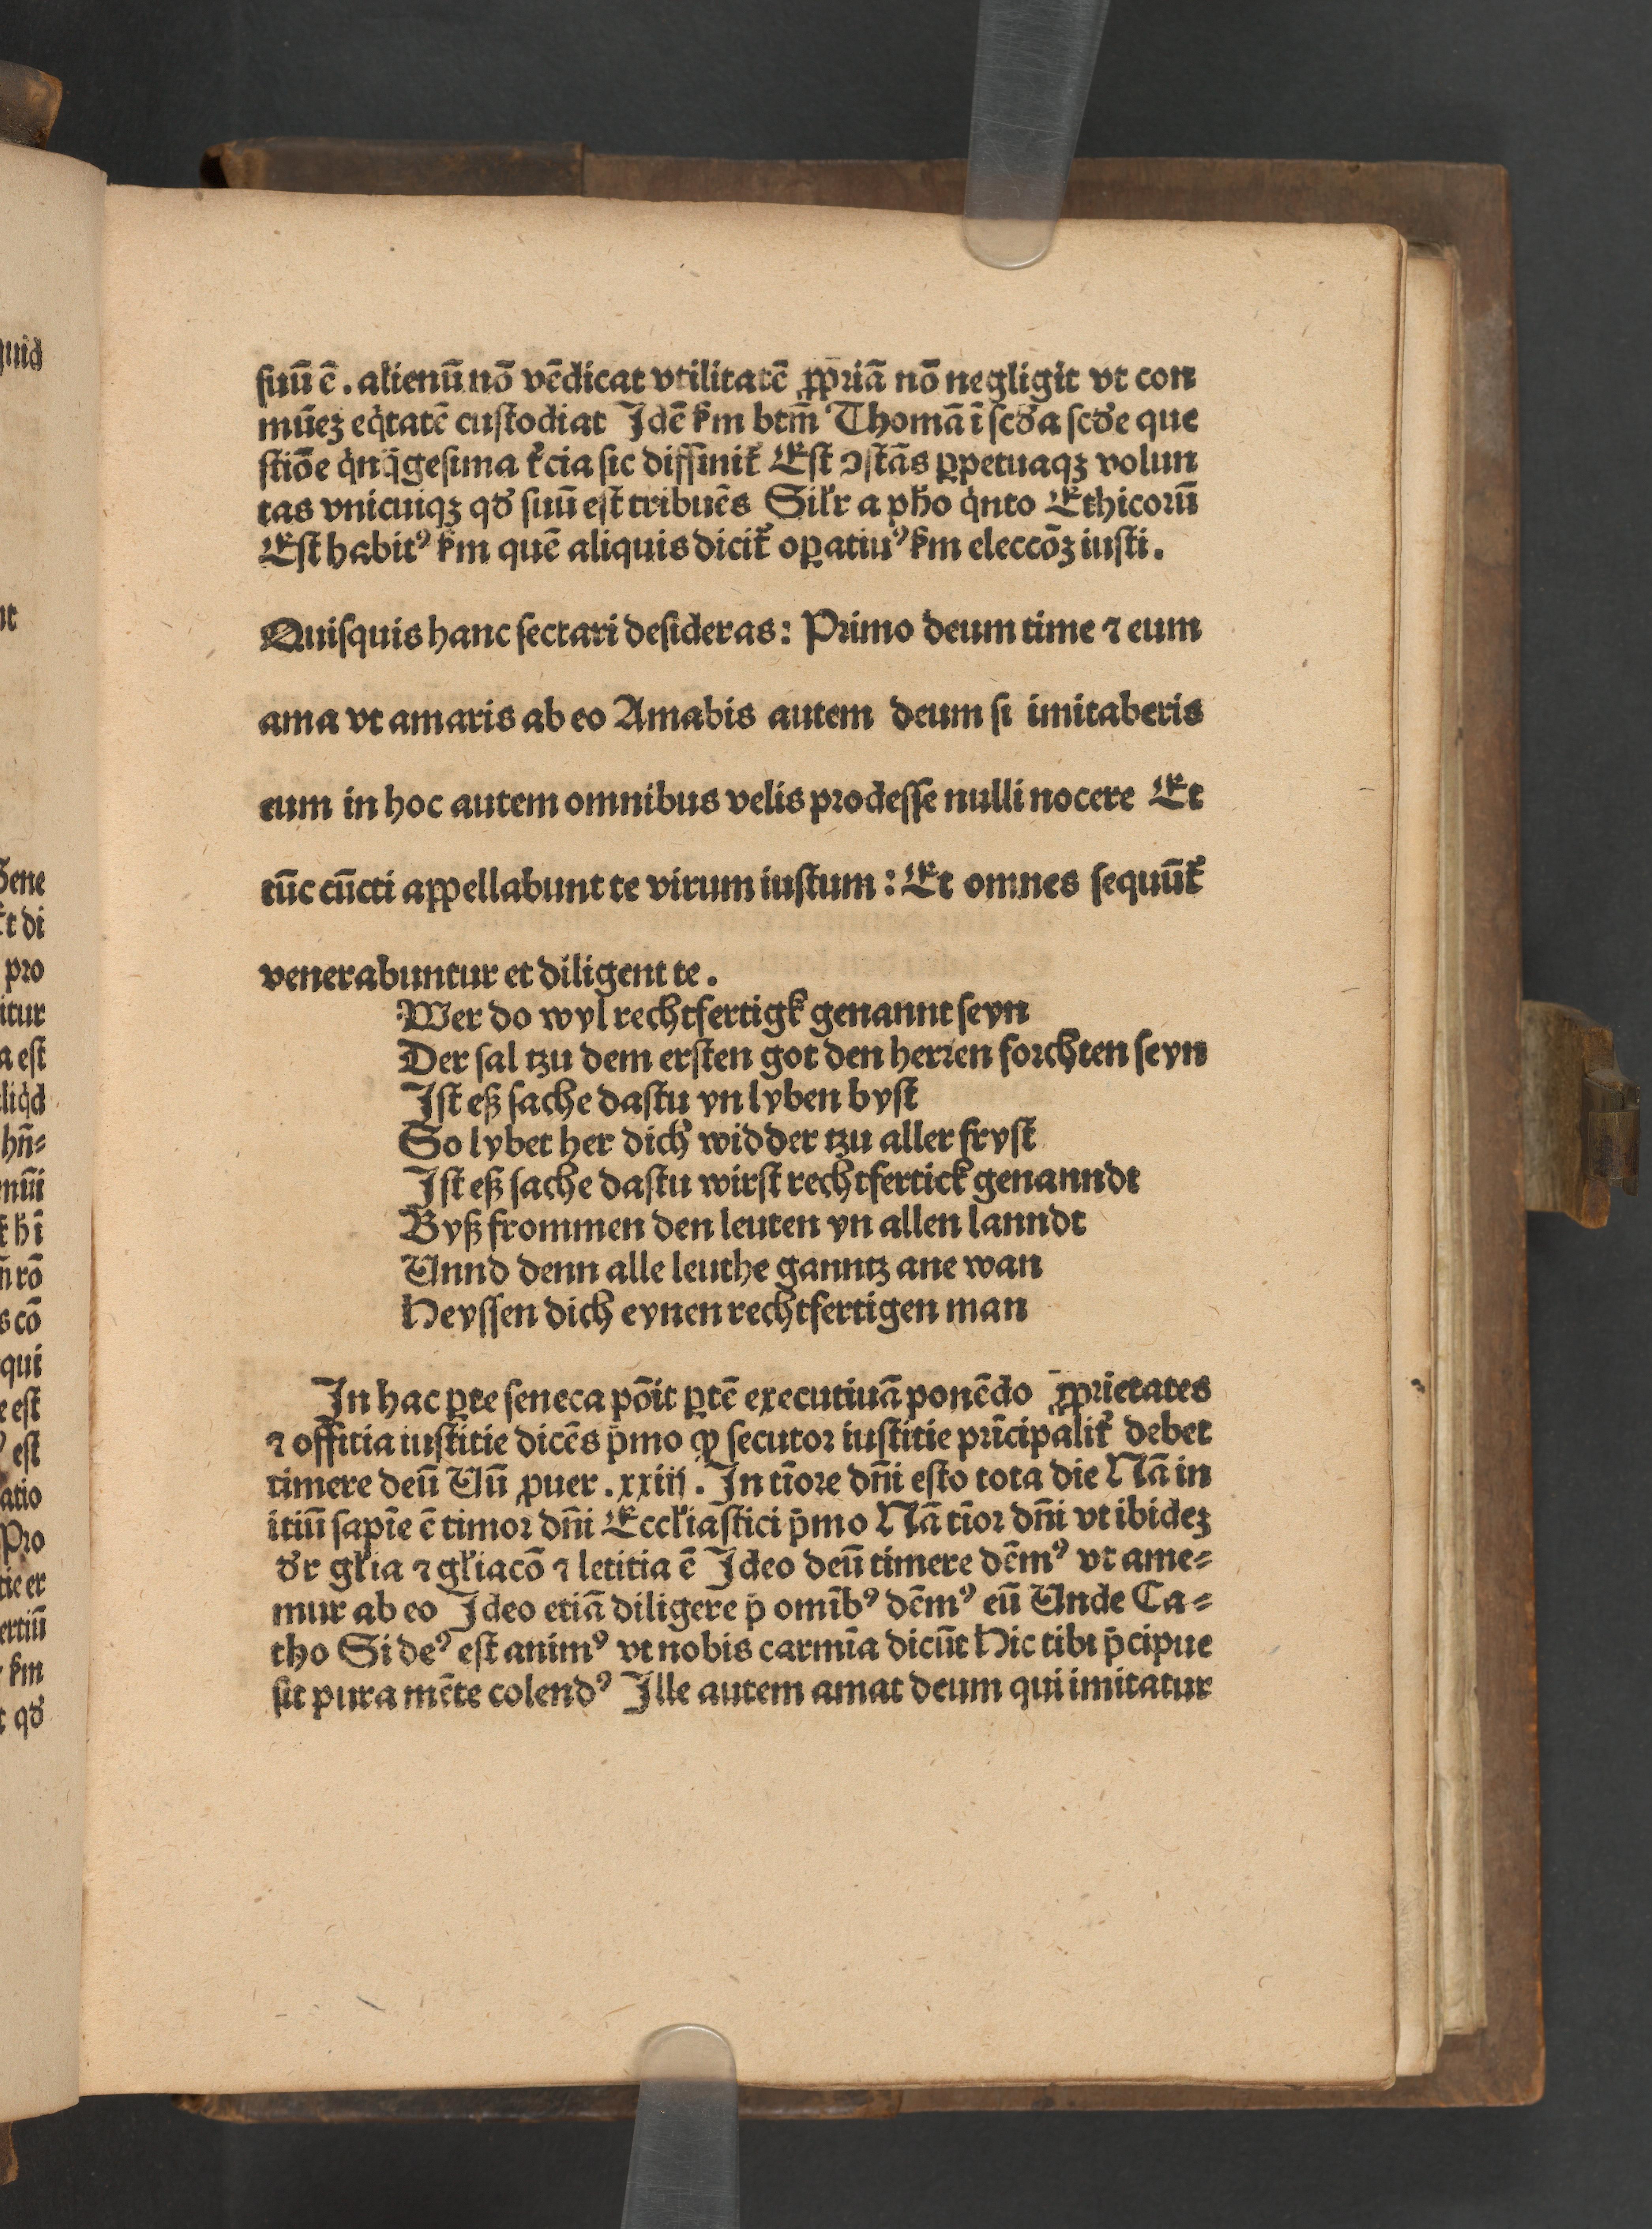 ſuū ē. alienū nō vēdicat vtilitatē ꝓpriā nō negligit vt con
mūeꝫ eq̇tatē cuſtodiat Idē ẜm btm̄ Thomā ī ſcd'a ſcd'e que
ſtiōe q̇nq̄geſima t'cia ſic diffinit' Eſt ↄſtās ꝑpetuaqꝫ volun
tas vnicuiqꝫ qd' ſuū eſt tribuēs Sil'r a ph'o q̇nto Ethicorū
Eſt habitꝰ ẜm quē aliquis dicit' oꝑatiuꝰ ẜm eleccōꝫ iuſti.
Quiſquis hanc ſectari deſideras: Primo deum time ⁊ eum
ama vt amaris ab eo Amabis autem deum ſi imitaberis
eum in hoc autem omnibus velis prodeſſe nulli nocere Et
tūc cūcti appellabunt te virum iuſtum: Et omnes ſequūt'
venerabuntur et diligent te.
Wer do wyl rechtfertigk genannt ſeyn
Der ſal tzu dem erſten got den herren forchten ſeyn
Iſt eß ſache daſtu yn lyben byſt
So lybet her dich widder tzu aller fryſt
Iſt eß ſache daſtu wirſt rechtfertick genanndt
Byß frommen den leuten yn allen lanndt
Unnd denn alle leuthe ganntz ane wan
Heyſſen dich eynen rechtfertigen man
In hac ꝑte ſeneca pōit ꝑtē executiuā ponēdo ꝓprietates
⁊ offitia iuſtitie dicēs p̄mo ꝙ ſecutor iuſtitie prīcipalit' debet
timere deū Uū ꝓuer. xxiij. In tīore dn̄i eſto tota die Nā in
itiū ſapīe ē timor dn̄i Eccl'iaſtici p̄mo Nā tīor dn̄i vt ibideꝫ
d'r gl'ia ⁊ gl'iacō ⁊ letitia ē Ideo deū timere dēmꝰ vt ame⸗
mur ab eo Ideo etiā diligere p̄ omībꝰ dēmꝰ eū Unde Ca⸗
tho Si deꝰ eſt animꝰ vt nobis carmīa dicūt Hic tibi p̄cipue
ſit pura mēte colendꝰ Ille autem amat deum qui imitatur